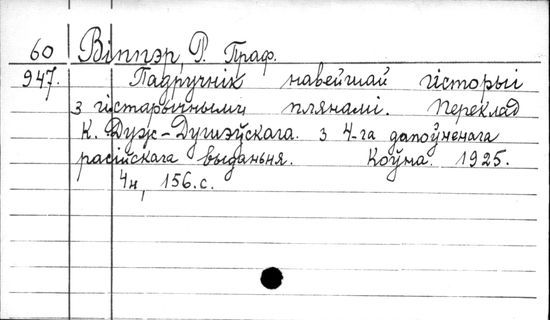 60 Віппэр, Р. Праф.
947. Падручнік навейшай гісторыі
з гістарычнымі плянамі. Пераклад
К. Дуж-Душэўскага. з 4-га дапоўненага
расійскага выданьня. Коўна. 1925.
4н, 156.с.